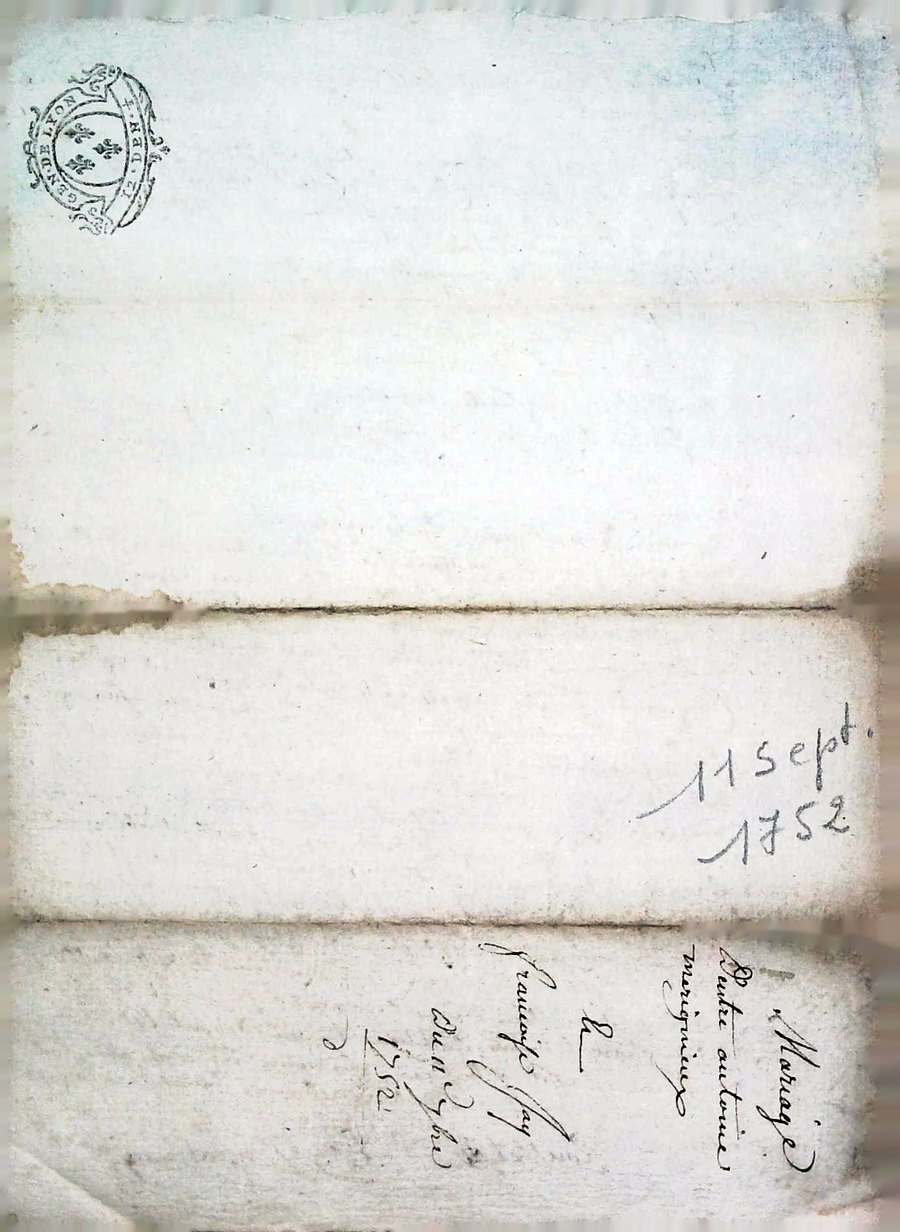 GEN. DE LYON
12 DEN. T
11 Sept.
1752
Mariage
Dentre antoine
merignieux
&
francoise Jay
Du 11 7bre
1752.